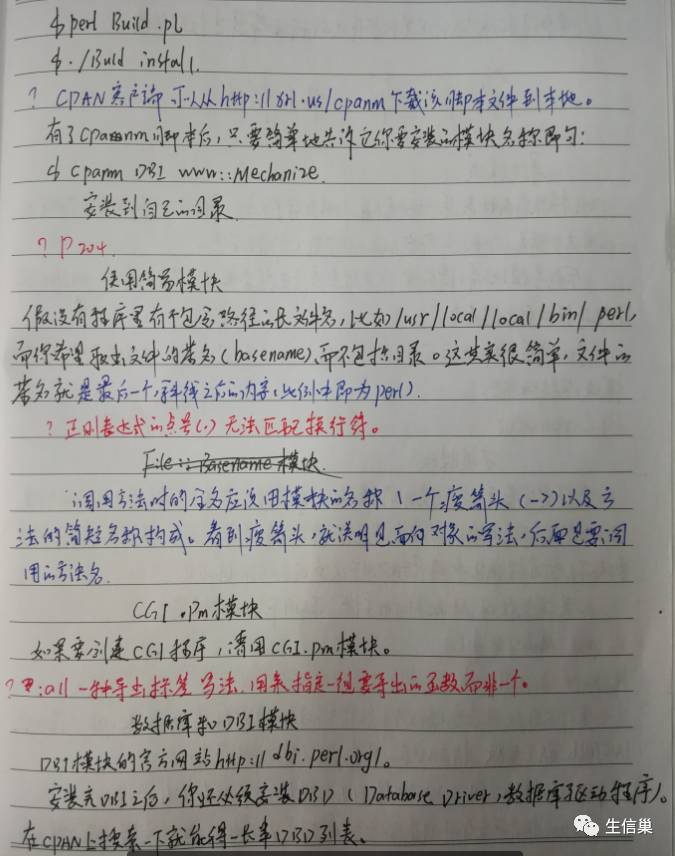 $ perl Build.PL
$ ./Buld install.
? CPAN客户端 可以从http://xrl.us/cpanm下载该脚本文件到本地。
有了cpanm脚本后，只要简单地告诉它你要安装的模块名称即可：
$ cpanm DBI www::Mechanize.
安装到自己的目录
? P204.
使用简易模块
假设有程序里有个包含路径的长文件名，比如/usr/local/local/bin/perl，
而你希望取出文件的基名(basename)，而不包括目录。这其实很简单，文件的
基名就是最后一个斜线之后的内容，此例中即为perl).
? 正则表达式的点号(.)无法匹配换行符。
File::Basename 模块.
调用方法时的全名应该用模块的名称、一个瘦箭头(->)以及方
法的简短名称构成。看到瘦箭头，就说明是面向对象的写法，后面是要调
用的方法名.
CGI.pm模块
如果要创建CGI程序，请用CGI.pm模块。
? :all 一种导出标签写法，用来指定一组要导出的函数而非一个。
数据库和DBI模块
DBI模块的官方网站http://dbi.perl.org/。
安装完DBI之后，你还必须安装DBD（Database Driver，数据库驱动程序）。
在CPAN上搜索一下就能得一长串DBD列表。
生信巢